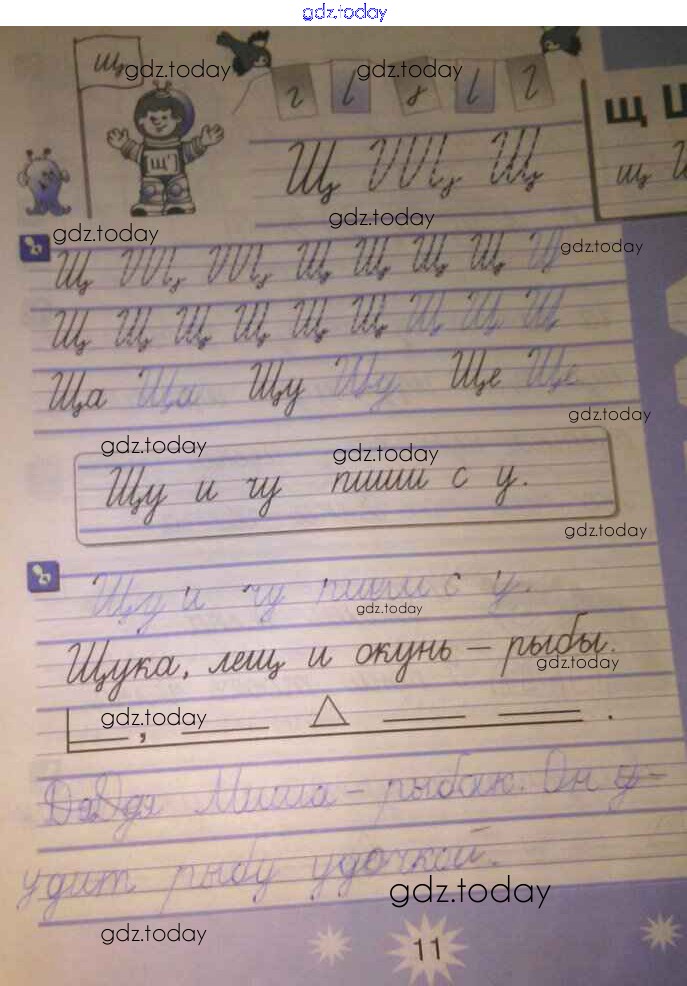 gdz.today
щ
gdz.today
gdz.today
щ
Щ Щ
Щ Щ
щ
gdz.today
gdz.today
gdz.today
Щ Щ Щ Щ Щ Щ
Щ Щ Щ Щ Щ Щ Щ Щ Щ
Ща Ща Щу Щу Ще Ще
gdz.today
gdz.today
gdz.today
Щу и чу пиши с у.
gdz.today
Щу и чу пиши с у.
gdz.today
Щука, лещ и окунь – рыбы.
gdz.today
gdz.today
, .
Дядя Миша – рыбак. Он у-
удит рыбу удочкой.
gdz.today
gdz.today
11